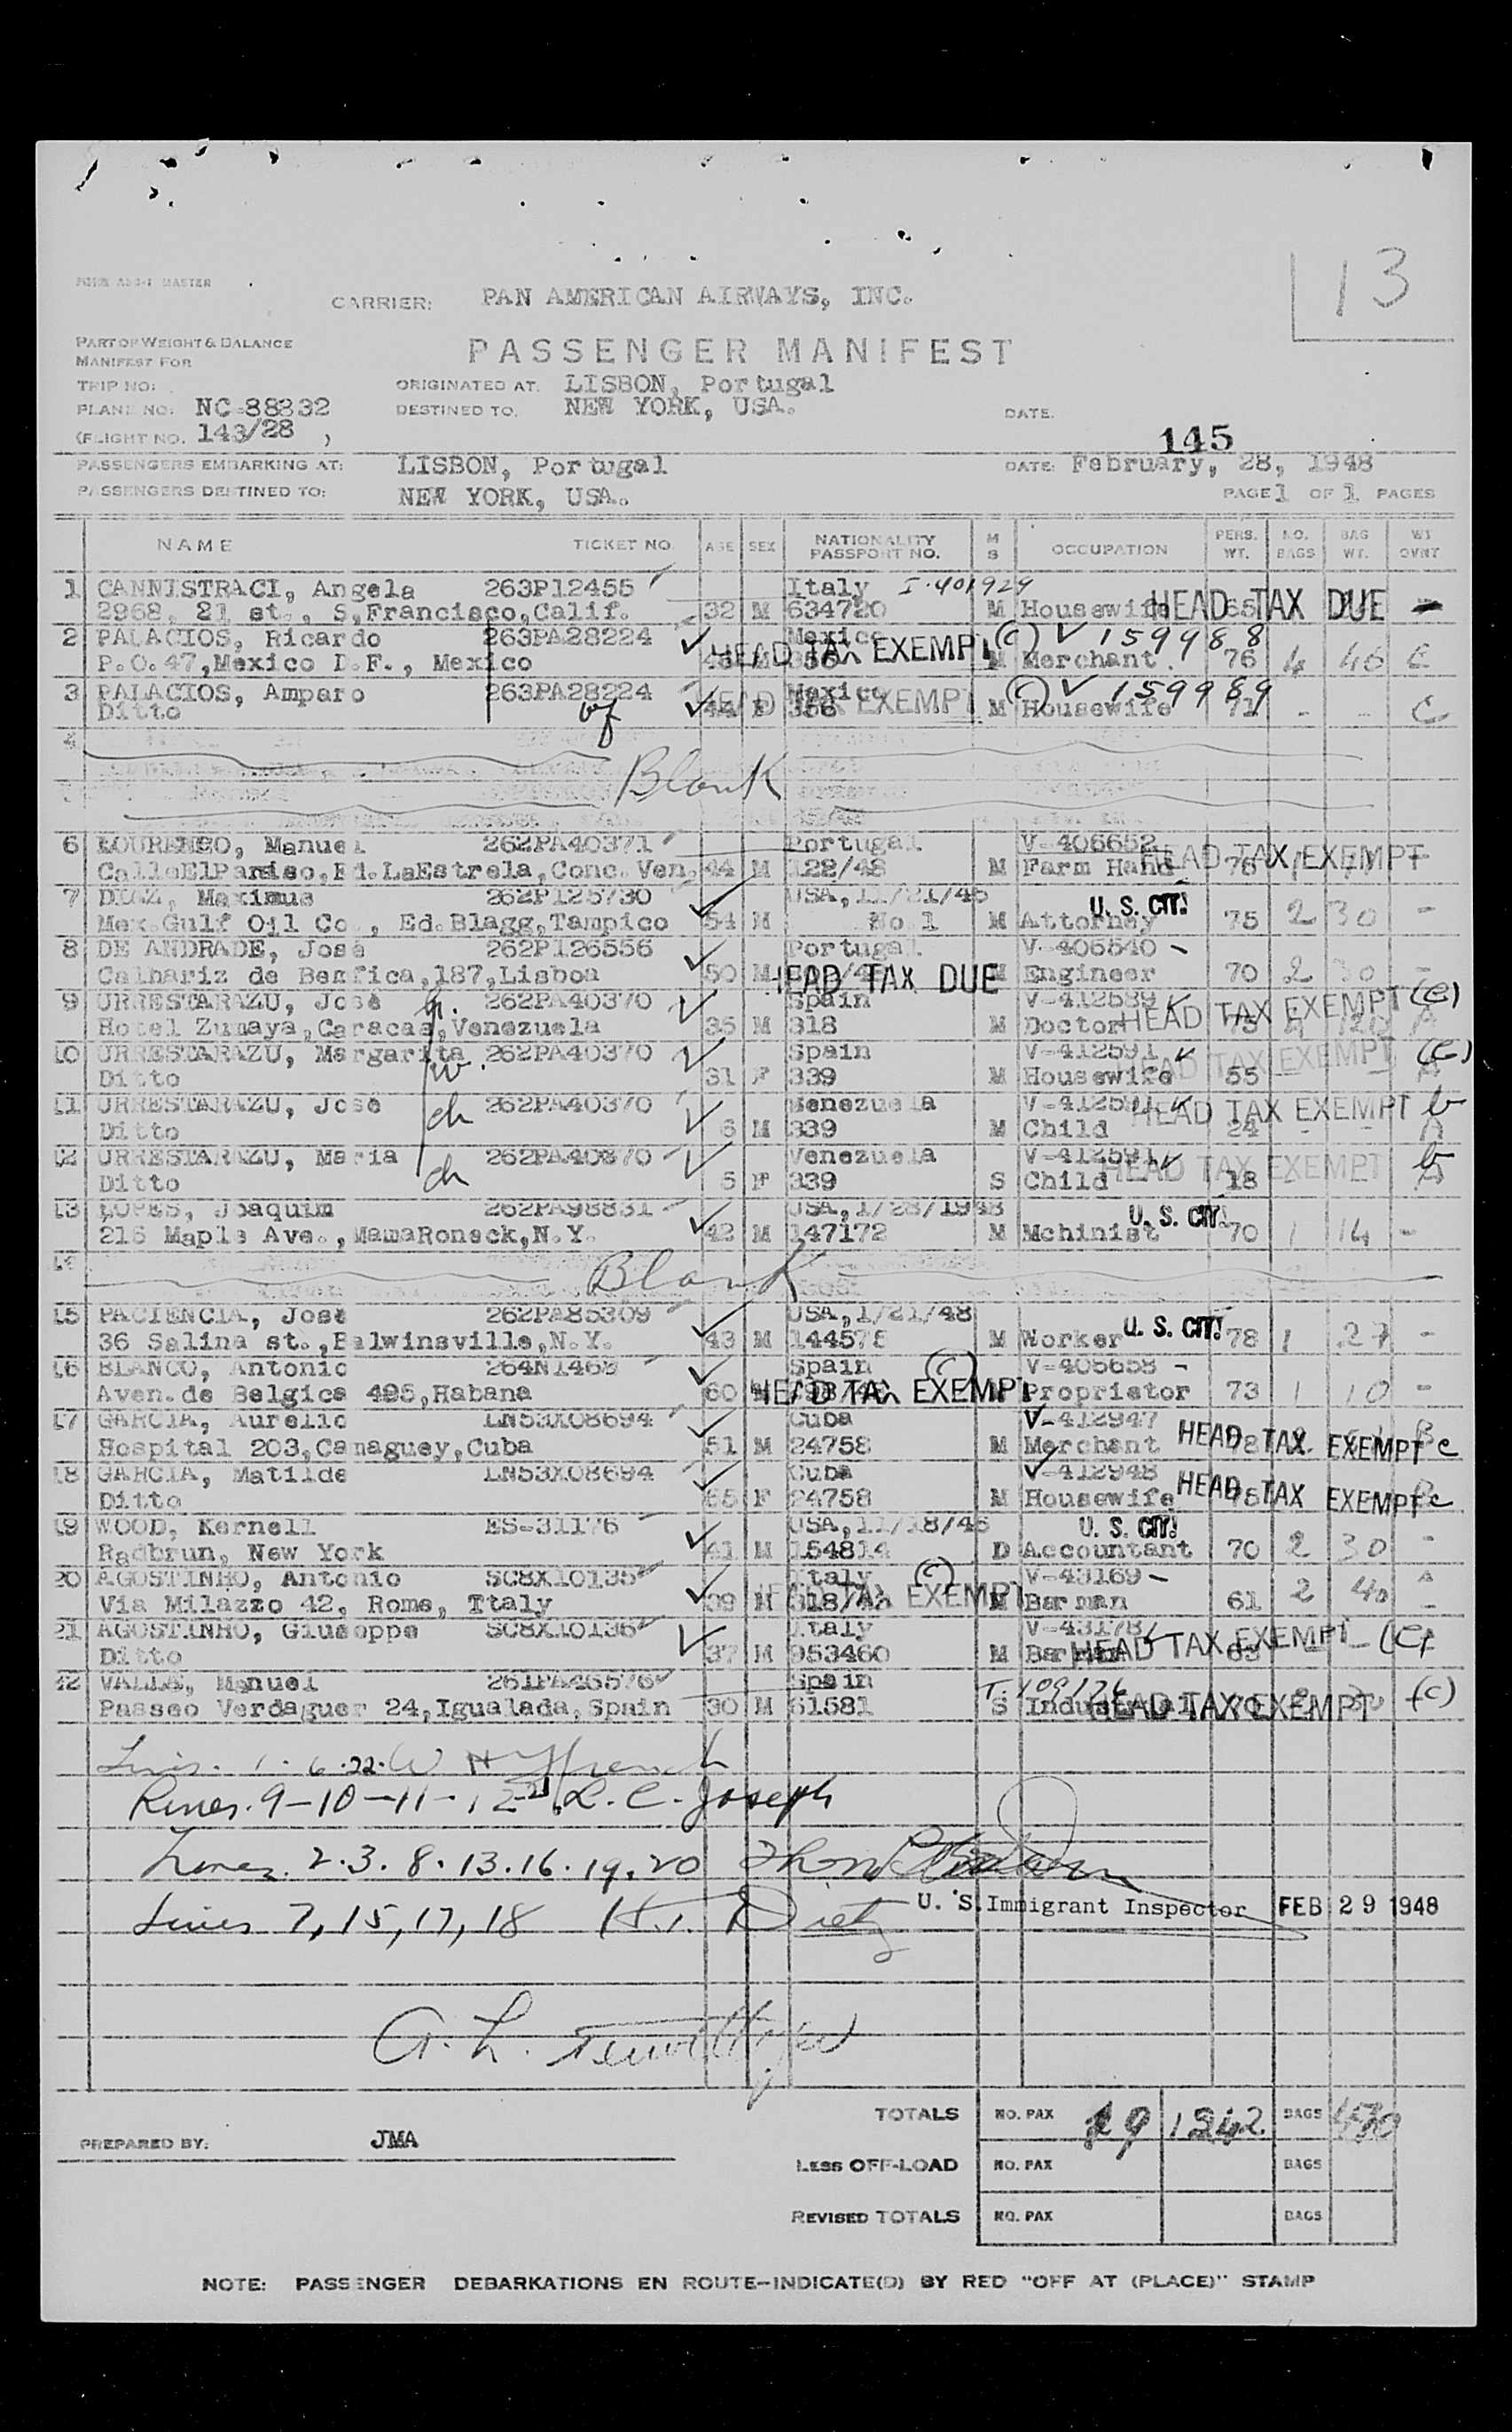 13
FORM ADJ-1 MASTER
CARRIER: PAN AMERICAN AIRWAYS, INC.
PART OF WEIGHT & BALANCE
MANIFEST FOR
PASSENGER MANIFEST
TRIP NO: ORIGINATED AT. LISBON, Portugal
PLANE NO: NC-88832 DESTINED TO. NEW YORK, USA. DATE.
(FLIGHT NO. 143/28 )
145
PASSENGERS EMBARKING AT: LISBON, Portugal DATE: February, 28, 1948
PASSENGERS DESTINED TO: NEW YORK, USA. PAGE 1 OF 1 PAGES
NAME TICKET NO. AGE SEX NATIONALITY PASSPORT NO. M S OCCUPATION PERS. WT. NO. BAGS BAG WT. WT OVNT
1 CANNISTRACI, Angela 263P12455 Italy I-401929
2968, 21 st., S,Francisco,Calif. 32 M 634720 M Housewife 65 HEAD TAX DUE -
2 PALACIOS, Ricardo 263PA28224 Mexico (c) 159988
P.O.47,Mexico D.F., Mexico HEAD TAX EXEMPT M 356 M Merchant. 76 4 46 C
3 PALACIOS, Amparo 263PA28224 Mexico (c) 159989
Ditto wf 44 F 356 HEAD TAX EXEMPT M Housewife 71 - - C
4
Blank
6 LOURENSO, Manuel 262PA40371 Portugal V-406652
CalleElParaiso,Ed.LaEstrela,Conc.Ven. 44 M 122/48 M Farm Hand 76 HEAD TAX EXEMPT
7 DIAZ, Maximus 262P125730 USA,11/21/46 U. S. CIT.
Mex.Gulf Oil Co., Ed.Blagg,Tampico 54 M No.1 M Attorney 75 2 30 -
8 DE ANDRADE, José 262P126556 Portugal V-406640 -
Calhariz de Benfica,187,Lisboa 50 M HEAD TAX DUE M Engineer 70 2 30 -
9 URRESTARAZU, José h. 262PA40370 Spain V-412589 HEAD TAX EXEMPT (e)
Hotel Zumaya,Caracas,Venezuela 35 M 318 M Doctor 75
10 URRESTARAZU, Margarita w. 262PA40370 Spain V-412591 HEAD TAX EXEMPT (e)
Ditto 31 F 339 M Housewife 55
11 URRESTARAZU, José ch 262PA40370 Venezuela V-412591 HEAD TAX EXEMPT b
Ditto 6 M 339 M Child 24 - -
12 URRESTARAZU, Maria ch 262PA40370 Venezuela V-412591 HEAD TAX EXEMPT b
Ditto 5 F 339 S Child 18
13 LOPES, Joaquim 262PA98831 USA,1/28/1948 U. S. CIT.
216 Maple Ave.,MamaRoneck,N.Y. 42 M 147172 M Mchinist 70 1 14 -
14
Blank
15 PACIENCIA, José 262PA85309 USA,1/21/48 U. S. CIT.
36 Salina st.,Balwinsville,N.Y. 43 M 144578 M Worker 78 1 27 -
16 BLANCO, Antonio 264N1469 Spain (c) V-405658 -
Aven.de Belgica 495,Habana 60 HEAD TAX EXEMPT Proprietor 73 1 10 -
17 GARCIA, Aurelio LN53X08694 Cuba V-412947
Hospital 203,Camaguey,Cuba 51 M 24758 M Merchant 78 HEAD TAX EXEMPT c
18 GARCIA, Matilde LN53X08694 Cuba V-412948
Ditto 55 F 24758 M Housewife HEAD TAX EXEMPT c
19 WOOD, Kernell ES-31176 USA,11/18/46 U. S. CIT.
Radbrun, New York 41 M 154814 D Accountant 70 2 30 -
20 AGOSTINHO, Antonio SC8X10135 Italy (c) V-43169 -
Via Milazzo 42, Rome, Italy 39 M HEAD TAX EXEMPT M Barman 61 2 40
21 AGOSTINHO, Giuseppe SC8X10136 Italy V-43178
Ditto 37 M 953460 M Barman 63 HEAD TAX EXEMPT (c)
22 VALLS, Manuel 261PA46576 Spain T-109126
Passeo Verdaguer 24,Igualada,Spain 30 M 61581 S Industrial 70 HEAD TAX EXEMPT (c)
Lines. 1. 6.22. W H French
Lines. 9-10-11-12 L. C. Joseph
Lines. 2.3. 8. 13.16. 19.20 Thom
Lines 7, 15, 17, 18 H. Dietz
U. S. Immigrant Inspector FEB 29 1948
A. L. Terwilliger
TOTALS NO. PAX 19 1242 BAGS
PREPARED BY: JMA
LESS OFF-LOAD NO. PAX BAGS
REVISED TOTALS NO. PAX BAGS
NOTE: PASSENGER DEBARKATIONS EN ROUTE-INDICATE(D) BY RED "OFF AT (PLACE)" STAMP